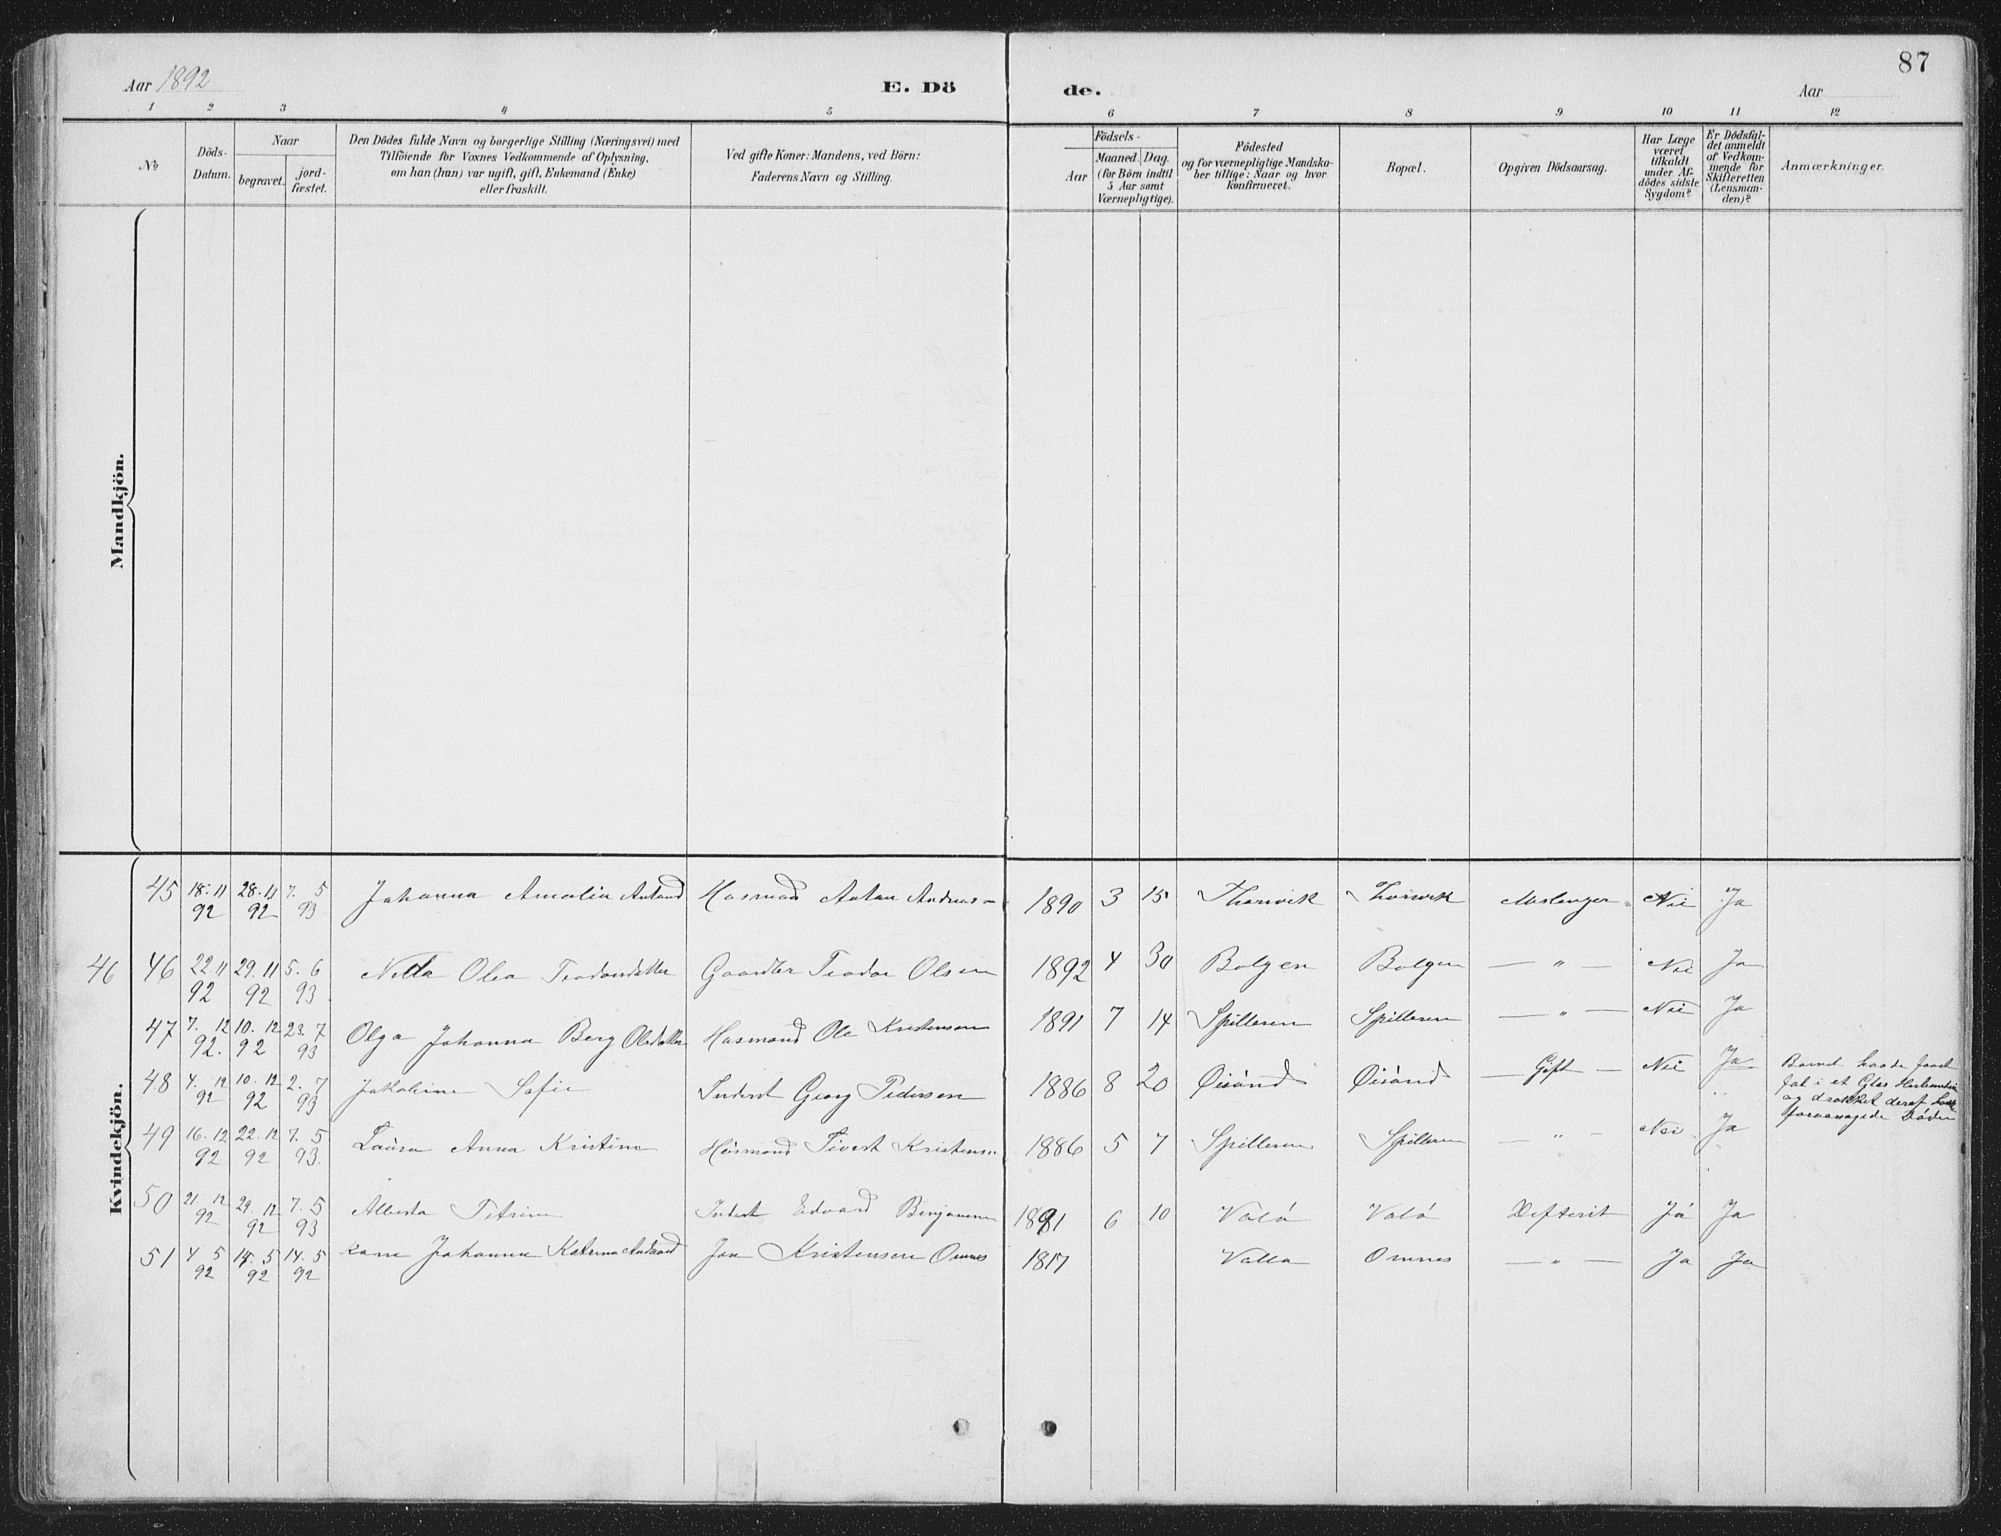 87
Aar 1892 E. Dö de. Aar
1 2 3 4 5 6 7 8 9 10 11 12
No
Döds-
Datum.
Naar
begravet.
jord-
fæstet.
Den Dödes fulde Navn og borgerlige Stilling (Næringsvei) med
Tilföiende for Voxnes Vedkommende af Oplysning,
om han (hun) var ugift, gift, Enkemand (Enke)
eller fraskilt.
Ved gifte Koner: Mandens, ved Börn:
Faderens Navn og Stilling.
Födsels-
Aar
Maaned. Dag.
(for Börn indtil
5 Aar samt
Værnepligtige).
Födested
og for værnepligtige Mandska-
ber tillige: Naar og hvor
konfirmeret.
Bopæl.
Opgiven Dödsaarsag.
Har Læge
været
tilkaldt
under Af-
dödes sidste
Sygdom?
Er Dödsfal-
det anmeldt
af Vedkom-
mende for
Skifteretten
(Lensman-
den)?
Anmærkninger.
Mandkjön.
Kvindekjön.
45 18.11 92 28.11 92 7. 5 93 Johanna Amalia Husmand Anton 1890 3 15 Nei Ja
46 46 22.11 92 29.11 92 5. 6 93 Olea Olsen 1892 4 30 Bolgen Bolgen — " — Nei Ja
47 7. 12 92. 10. 12 92 23. 7 93 Olga Johanna Berg Olsdatter Husmand Ole Kristensen 1891 7 14 Spilleren Spilleren — " — Nei Ja
48 4. 12 92 10. 12 92 2. 7 93 Jakobine Sofie Inderst Georg Pedersen 1886 8 20 Øisund Øisund — Gift — Nei Ja Barnet havde faaet
fat i et Glas
og drukket deraf
foraarsagede Døden
49 16. 12 92 22. 12 92 7. 5 93. Laura Anna Kristine Husmand Sivert Kristensen 1886 5 7 Spilleren Spilleren — " — Nei Ja
50 21. 12 92 29. 12 92 7. 5 93 Alberta Petrine Inderst Edvard Benjaminsen 1891 6 10 Valø Valø Defterit Ja Ja
51 4. 5 92 14. 5 92 14. 5 92 Kone Johanna Kristensen Omnes 1817 Valla Omnes — " — Ja Ja